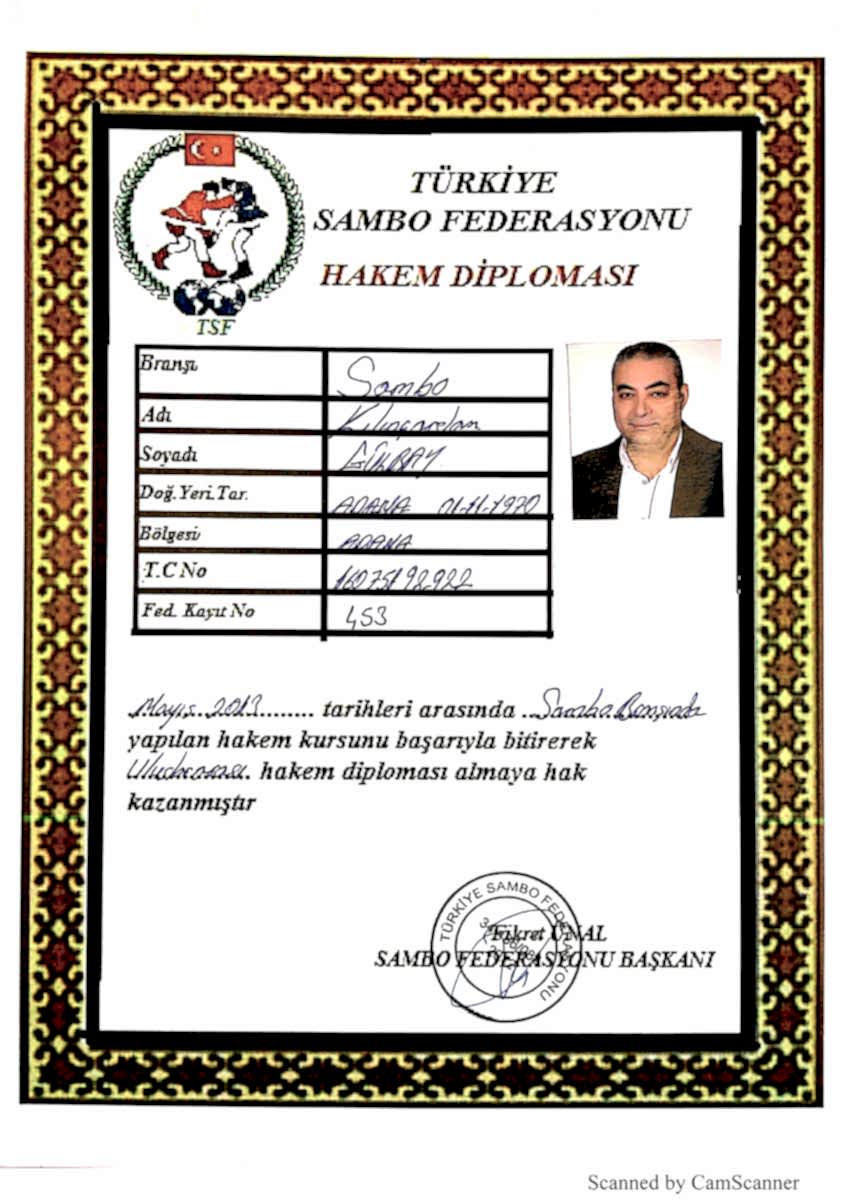 TÜRKİYE
SAMBO FEDERASYONU
HAKEM DİPLOMASI
TSF
Branşı Sambo
Adı Kılıçarslan
Soyadı GÜLBAY
Doğ.Yeri.Tar. ADANA 01-11-1970
Bölgesi ADANA
T.C No
Fed. Kayıt No 453
Mayıs 2013........ tarihleri arasında ..Sambo Branşında
yapılan hakem kursunu başarıyla bitirerek
Uluslararası. hakem diploması almaya hak
kazanmıştır
TÜRKİYE SAMBO FEDERASYONU
Fikret ÜNAL
SAMBO FEDERASYONU BAŞKANI
Scanned by CamScanner